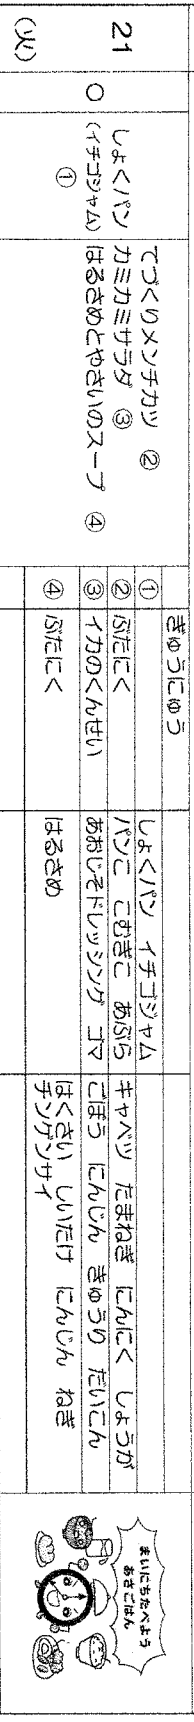 21
(火)
○
しょくパン
(イチゴジャム)
①
てづくりメンチカツ ②
カミカミサラダ ③
はるさめとやさいのスープ ④
ぎゅうにゅう
① しょくパン イチゴジャム
② ぶたにく パンこ こむぎこ あぶら キャベツ たまねぎ にんにく しょうが
③ イカのくんせい あおじそドレッシング ゴマ ごぼう にんじん きゅうり だいこん
④ ぶたにく はるさめ はくさい しいたけ にんじん ねぎ
チンゲンサイ
まいにちたべよう
あさごはん